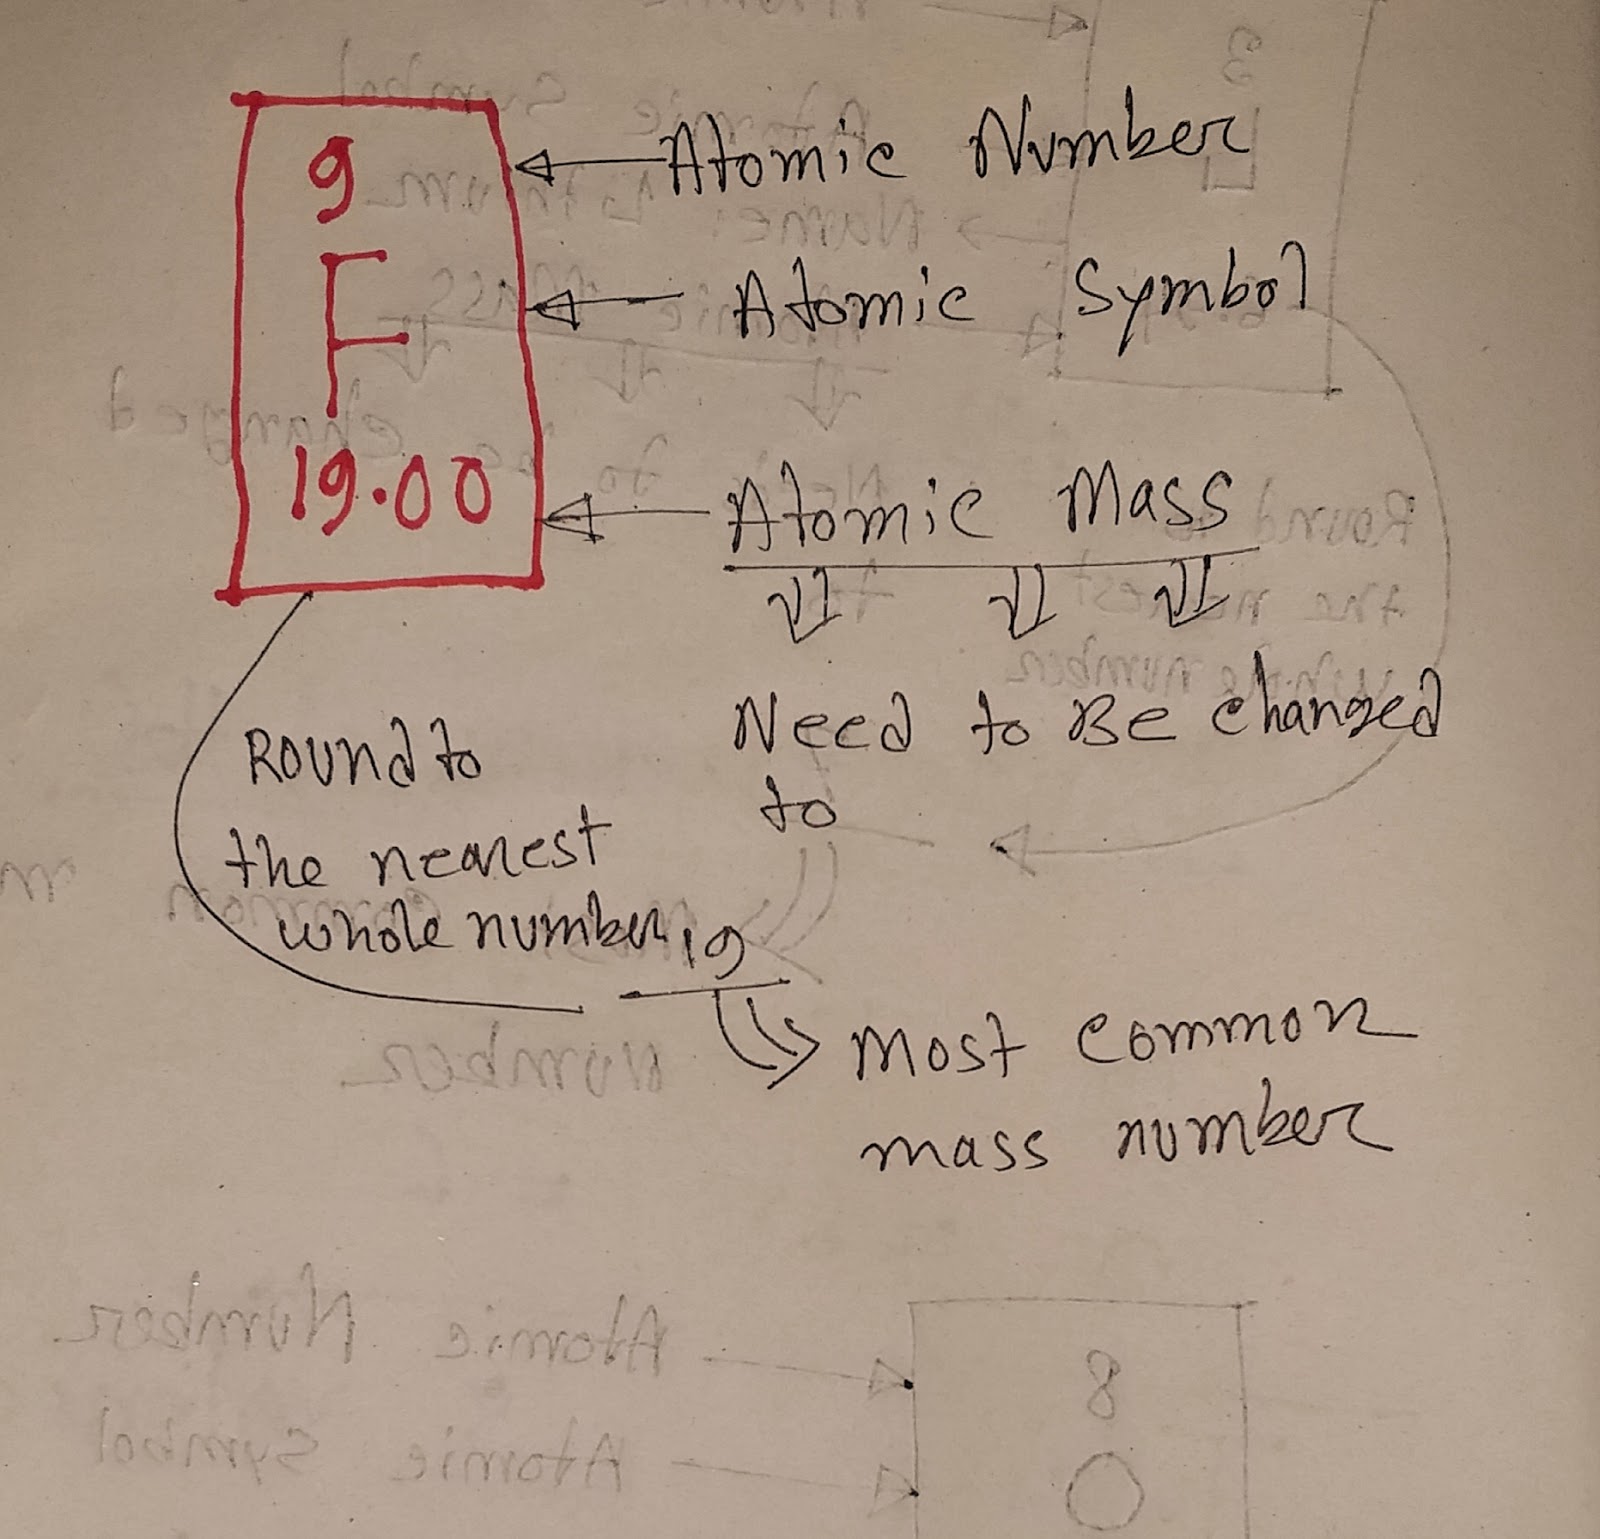 9
Atomic Number
F
Atomic Symbol
19.00
Atomic Mass
Need to Be changed
to
Round to
the nearest
whole number 19
Most common
mass number
Atomic Number
8
Atomic Symbol
O